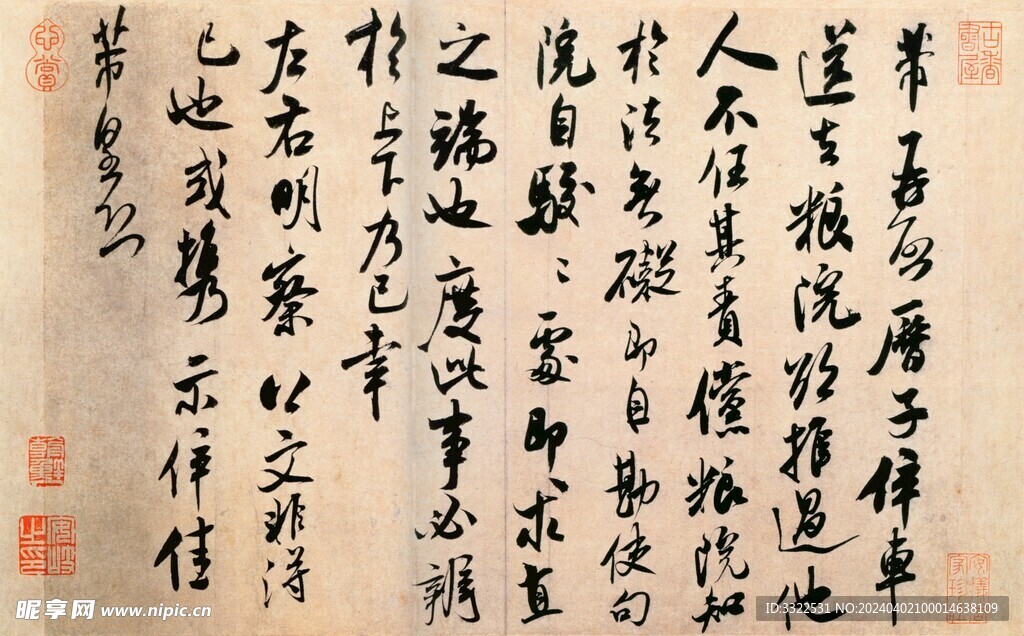 芾再啓曆子倅車
送去粮院欲推過他
人不任其責儻粮院知
於法無礙即自勘使句
院自駁〻處即求直
之端也度此事必辦
於上下乃已幸
左右明察公文非得
已也或携示倅佳
芾皇恐
心賞
安岐之印
昵享网 www.nipic.cn
ID:3322531 NO:20240402100014638109